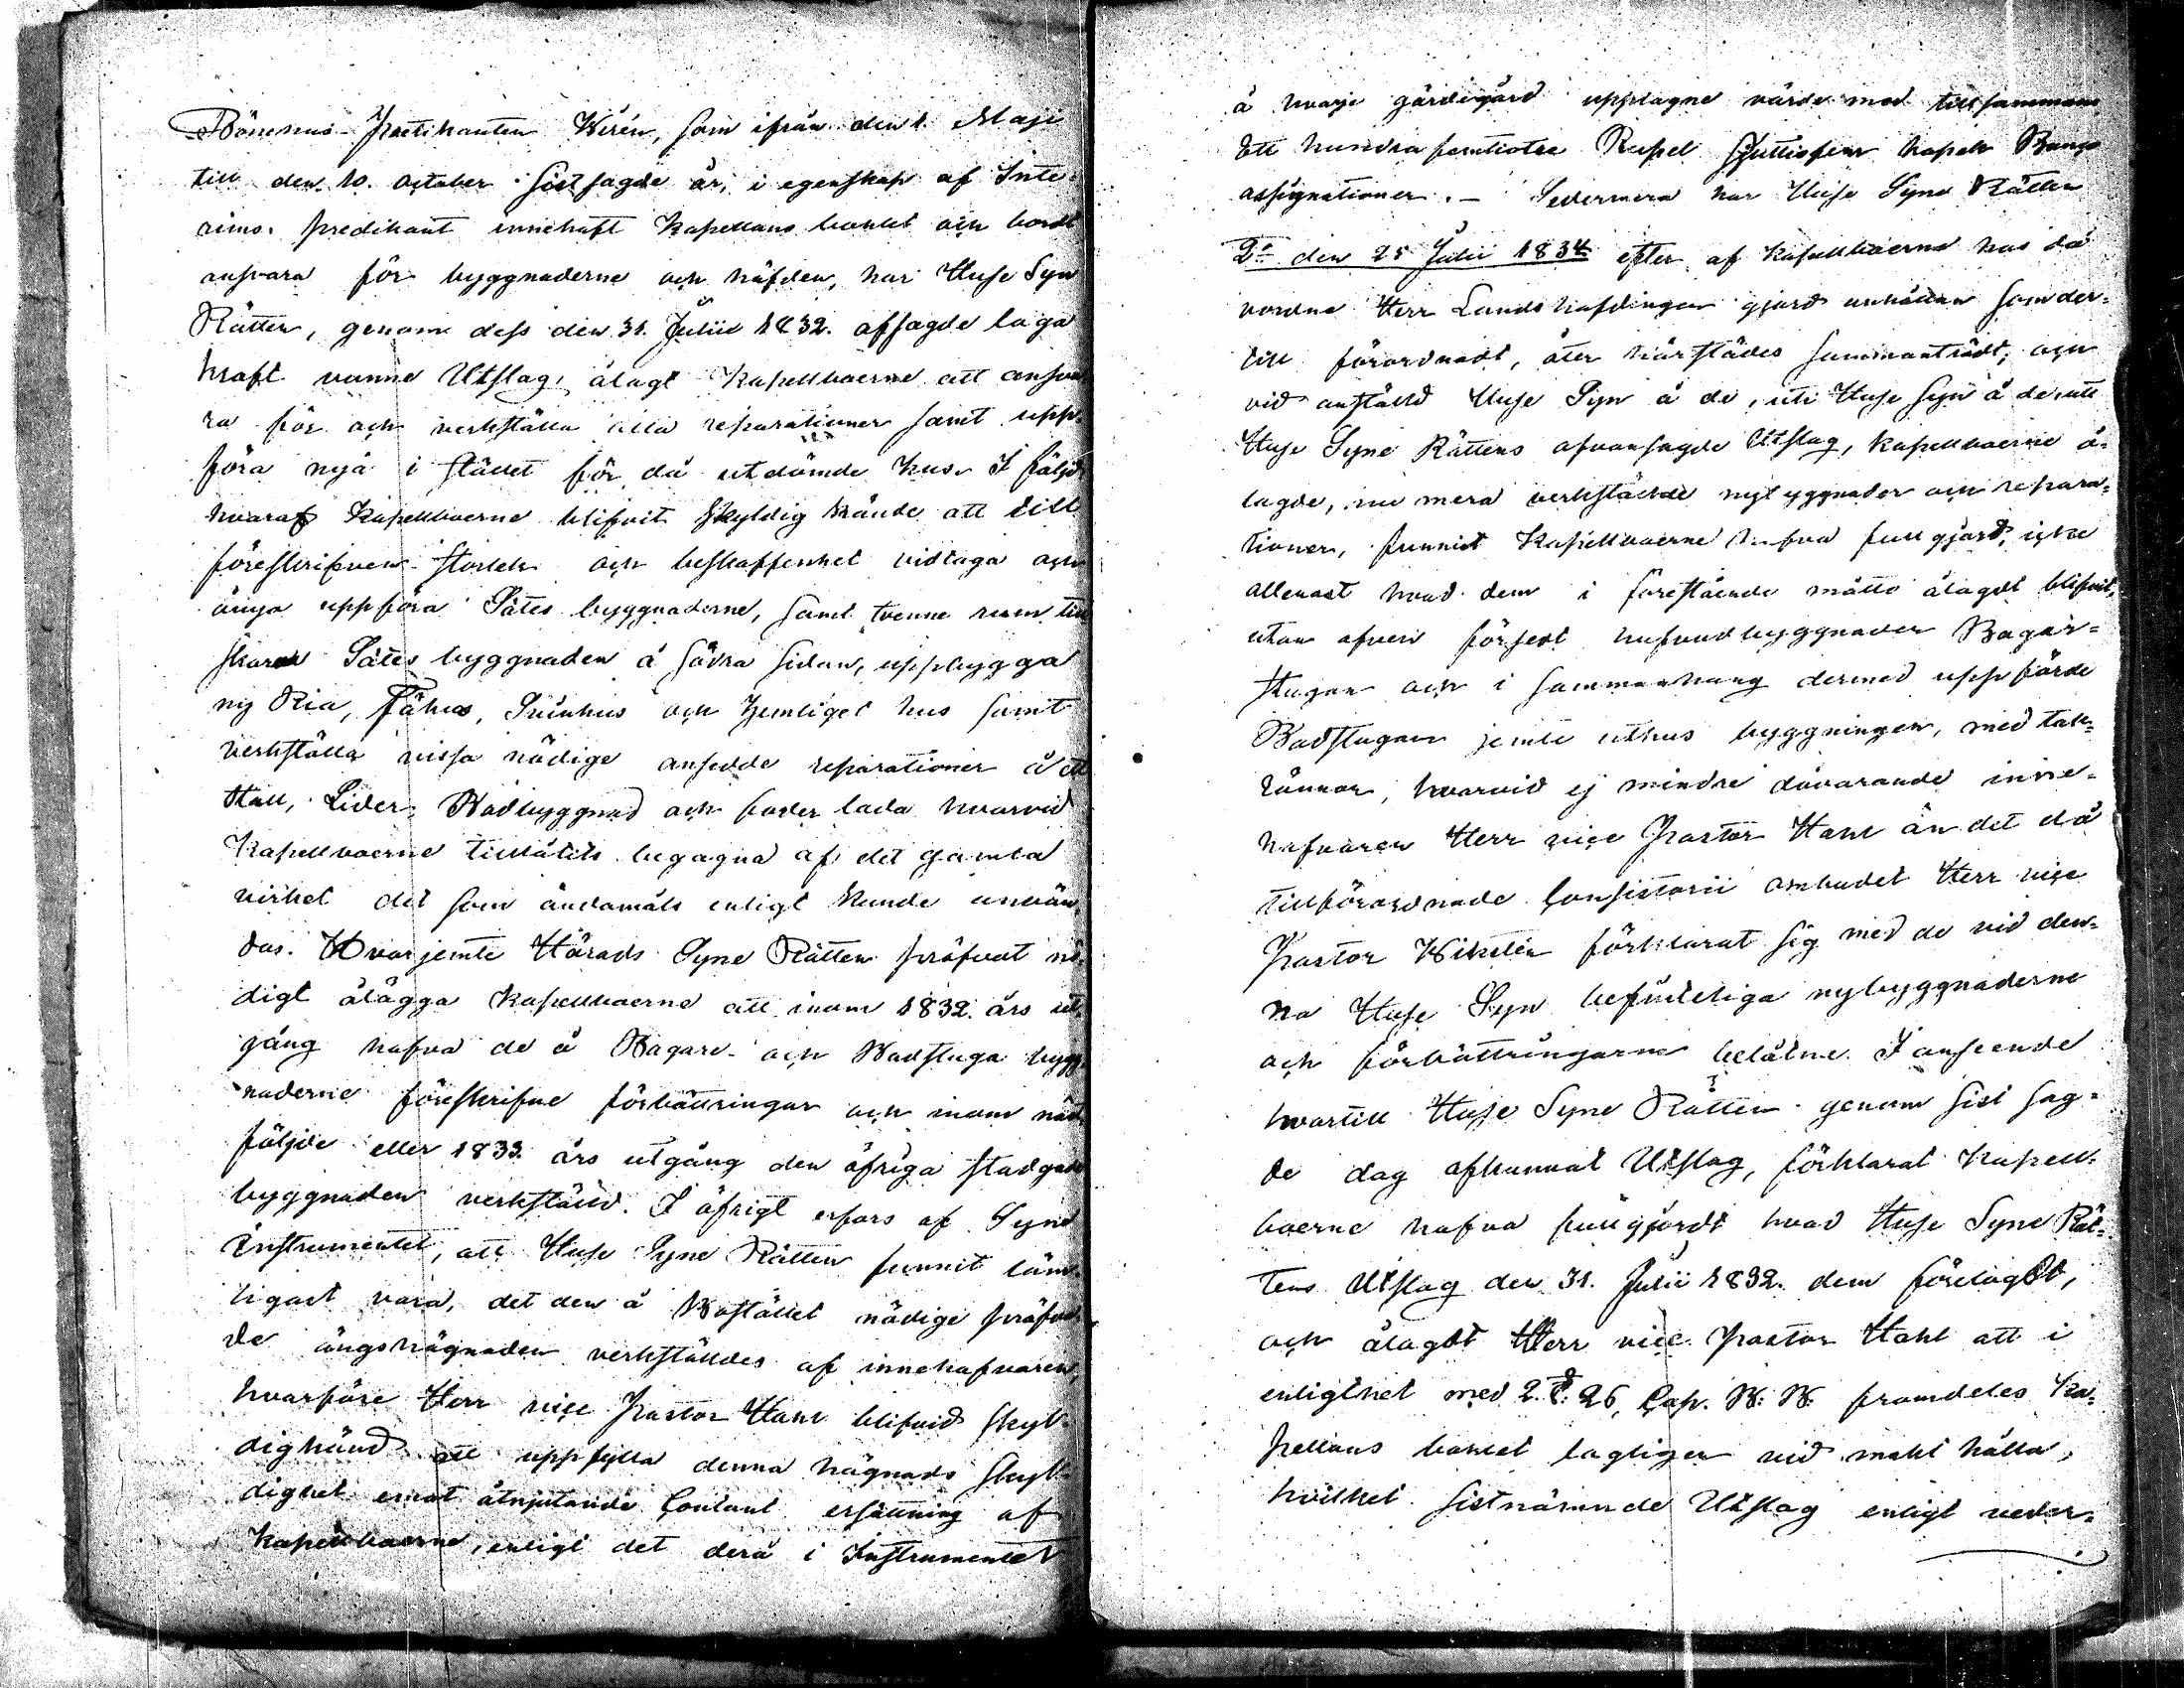 Bönehus-Predikanten Wirén, som ifrån den 1. Maji
till den 10. october sistsagde år, i egenskap af Inte-
rims predikant innehaft Kapellans bohlet och bordt
ansvara för byggnaderne och häfden, har Huse Syn
Rätten, genom dess den 31. Julii 1832. afsagde laga
kraft vunne Utslag, ålagt Kapellboerne att ansva-
ra för och verkställa alla reparationer samt upp-
föra nya i stället för då utdömde hus. I följd
hvaraf Kapellboerne blifvit skyldig kände att till
föreskrifven storlek och beskaffenhet vidtaga och
ånyo uppföra Sätes byggnaderne, samt tvenne rum till
Sätes byggnaden å södra sidan, uppbygga
ny Ria, Fähus, Svinhus och hemliget hus samt
verkställa vissa nödige ansedde reparationer å ett
Stall, Lider, Bodbyggnad och foder lada hvarvid
Kapellboerne tillåtits begagna af det gamla
virket det som ändamåls enligt kunde använ-
das. Hvarjemte Härads Syne Rätten pröfvat nö-
digt ålägga Kapellboerne att inom 1832. års ut-
gång hafva de å Bagare- och Badstuga bygg-
naderne föreskrifne förbättringar och inom näst-
följde eller 1833. års utgång den öfriga stadgade
byggnaden verkställd. I öfrigt erfars af Syne
Instrumentet, att Huse Syne Rätten funnit läm-
ligast vara, det den å Bostället nödige pröfva-
de ängshägnaden verkställdes af innehafvaren,
hvarföre Herr vice Pastor Hahl blifvid skyl-
dig känd att uppfylla denna hägnads skyl-
dighet emot åtnjutande Contant ersättning af
Kapellboerne, enligt det derå i Instrumentet
å hvarje gärdsgård upptagne värde med tillsammans
Ett hundra femtiotre Rubel Sjuttiofem kopek Banco
assignationer. - Sedermera har Huse Syne Rätten
2:o den 25 Julii 1834 efter af Kapellboerne hos då
vordne Herr Landshöfdingen gjord anhållan som der-
till förordnadt, åter härstädes sammanträdt, och
vid anställd Huse Syn å de, uti Huse Syn å de, utt
Huse Syne Rättens ofvansagde Utslag, kapellboerne å-
lagde, nu mera verkställde nybyggnader och repara-
tioner, funnit Kapellboerne hafva fullgjord, icke
allenast hvad dem i förestående måtto ålagdt blifvit,
utan äfven försedt hufvudbyggnaden Bagar-
stugan och i sammanhang dermed uppförde
Badstugan jemte uthus byggningen, med tak-
rännor, hvarvid ej mindre dåvarande inne-
hafvaren Herr vice Pastor Hahl än det då
tillförordnade Consistorii ombudet Herr vice
Pastor Wikelén förklarat sig med de vid den-
na Huse Syn befinteliga nybyggnaderne
och förbättringarne belåtne. I anseende
hvartill Huse Syne Rätten genom sist sag-
de dag afkunnat Utslag, förklarat Kapell-
boerne hafva fullgjordt hvad Huse Syne Rät-
tens Utslag den 31. Julii 1832. dem förelagdt,
och ålagdt Herr vice Pastor Hahl att i
enlighet med 2. §: 26. Cap. B: B. framdeles Ka-
pellans bohlet lagligen vid makt hålla,
hvilket sistnämnde Utslag enligt veder-